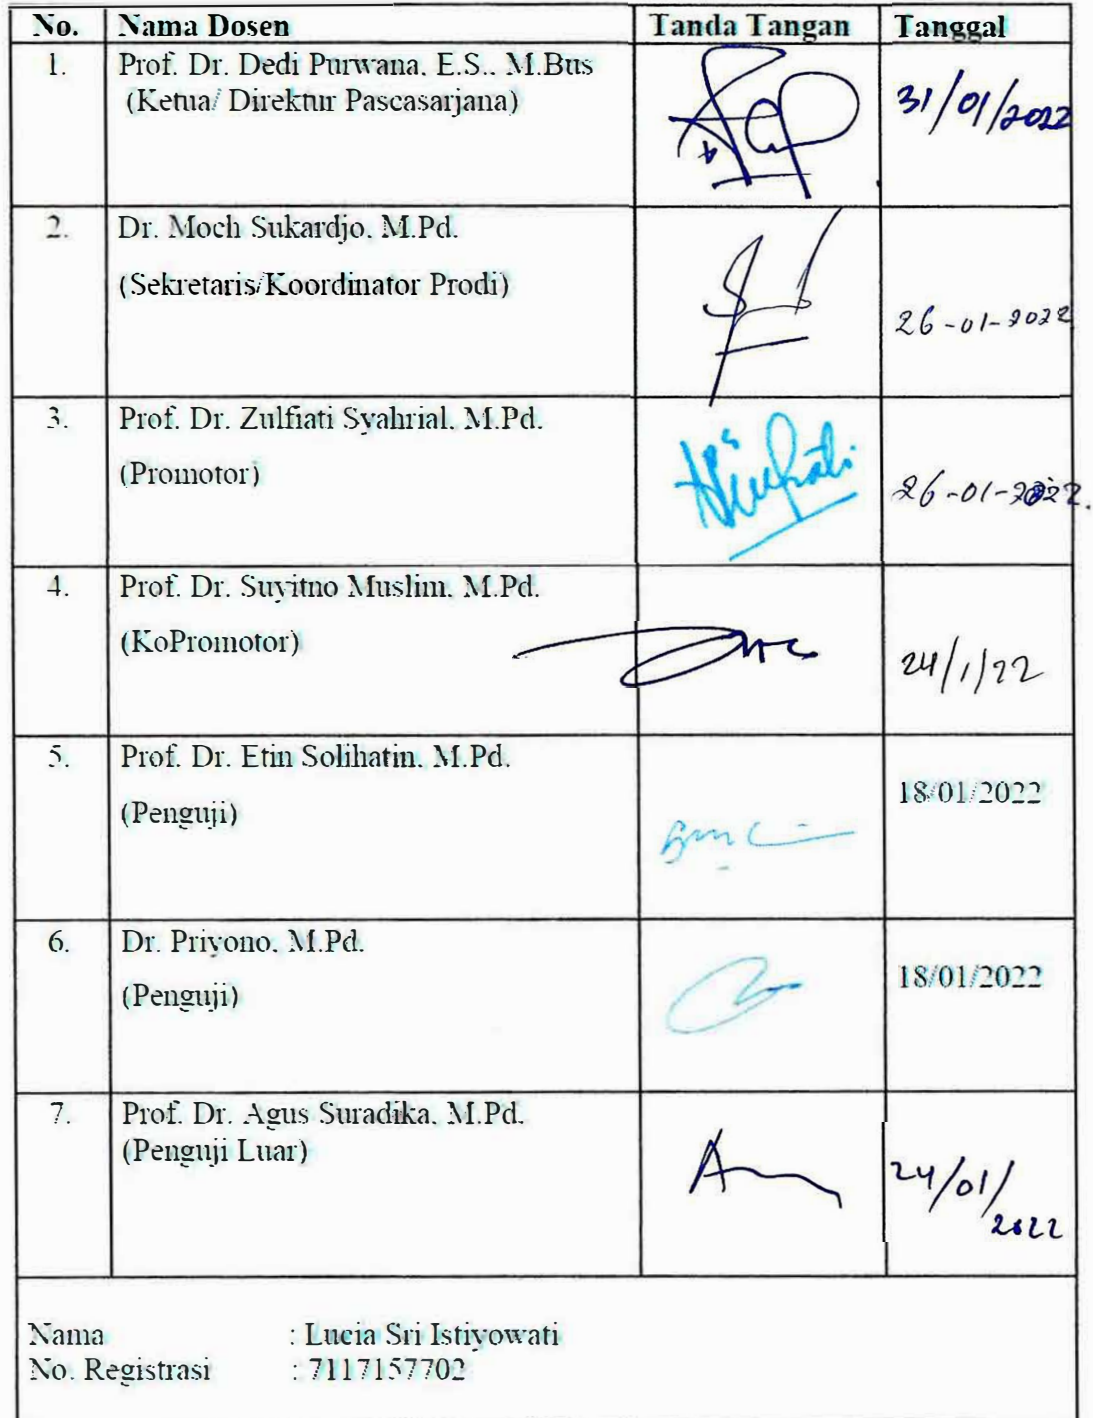 No. Nama Dosen Tanda Tangan Tanggal
1. Prof. Dr. Dedi Purwana, E.S., M.Bus
(Ketua/ Direktur Pascasarjana)
31/01/2022
2. Dr. Moch Sukardjo, M.Pd.
(Sekretaris/Koordinator Prodi)
26-01-2022
3. Prof. Dr. Zulfiati Syahrial, M.Pd.
(Promotor)
26-01-2022.
4. Prof. Dr. Suyitno Muslim, M.Pd.
(KoPromotor)
24/1/22
5. Prof. Dr. Etin Solihatin, M.Pd.
18/01/2022
(Penguji)
6. Dr. Priyono, M.Pd.
18/01/2022
(Penguji)
7. Prof. Dr. Agus Suradika, M.Pd.
(Penguji Luar)
24/01/
2022
Nama : Lucia Sri Istiyowati
No. Registrasi : 7117157702